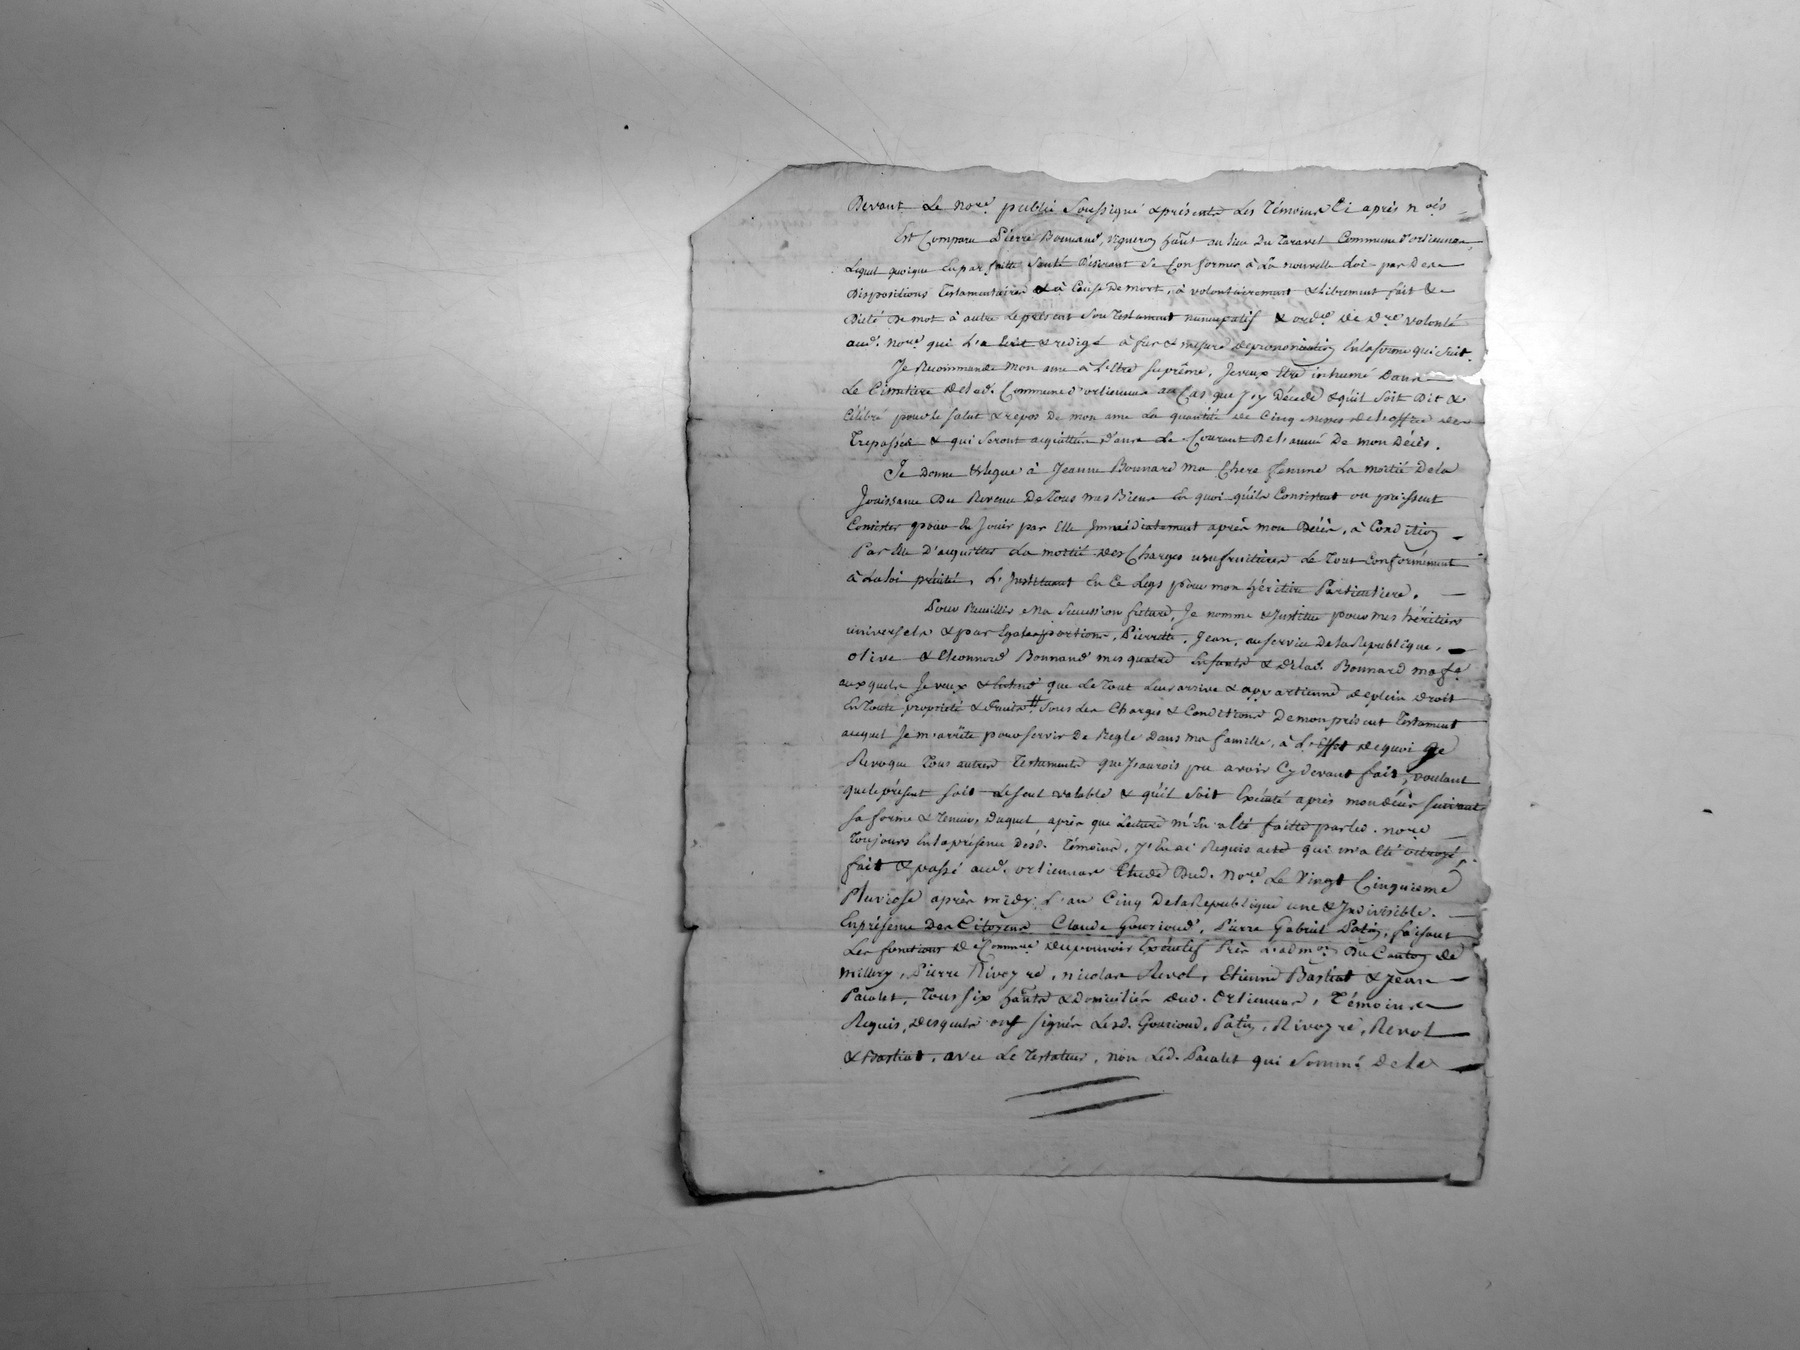 Devant Le Nore. public Soussigné & présents Les Témoins Ci après noés
Est Comparu Pierre Bonnand, vigneron habt. au lieu Du Taravel Commune d'orliennas,
Lequel quoique En parfaitte Santé Désirant se Conformer à La nouvelle Loi par Des
Dispositions Testamentaires & à Cause De mort, à volontairement & Librement fait &
Dicté De mot à autre Le présent Son Testament nuncupatif & ordce. de Dre. volonté
aud. nore. qui L'a Ecrit & redigé à fur & mesure de prononciation En la forme qui suit.
Je Recommande mon ame à L'Etre Suprême, Je veux Etre inhumé Dans
Le Cimetiere de lad. Commune d'orliennas au Cas que J'y Décede & qu'il soit Dit &
Célébré pour le salut & repos de mon ame La quantité de Cinq messes de l'office des
Trepassés & qui seront acquittées Dans Le Courant De L'année De mon Décès.
Je Donne & Legue à Jeanne Bonnard ma Chere femme La moitié De la
Jouissance Du Revenu De Tous mes Biens En quoi qu'ils Consistent ou puissent
Consister pour En Jouir par Elle Immédiatement après mon Décès, à Condition
Par Elle D'acquitter La moitié des Charges usufruitieres Le Tout Conformément
à La loi précitée, L'Instituant En Ce Legs pour mon héritiere Particuliere.
Pour Recueillir Ma Succession future, Je nomme & Institue pour mes héritiers
universels & par Egales portions, Pierrette, Jean, au service De la Republique,
olive & Eleonnord Bonnand mes quatre Enfants & de lad. Bonnard ma fe.
auxquels Je veux & Entend que Le Tout Leur arrive & appartienne de plein Droit
En Toute propriété & fruits # Sous Les Charges & Conditions De mon présent Testament
auquel Je m'arrête pour servir De Regle Dans ma famille, à L'Effet de quoi Je
Revoque Tous autres Testaments que J'aurois pu avoir Cy devant fait, voulant
que le présent soit Le seul valable & qu'il soit Exécuté après mon décès suivant
sa forme & Teneur, Duquel après que Lecture m'En a Eté faitte par led. nore
Toujours En la présence Desd. Témoins, J'En ai Requis acte qui m'a Eté octroyé.
fait & passé aud. orliennas Etude Dud. Nore. Le Vingt Cinquieme
Pluviose après midy L'an Cinq De la Republique une & Indivisible.
En présence Des Citoyens Claude Gourioud, Pierre Gabriel Patin, faisant
Les fonctions de Commre. du pouvoir Exécutif Près L'admon. Du Canton de
Millery, Pierre Rivoyre, nicolas Revol, Etienne Bastiat & Jean
Pacalet, Tous six habts. & domiciliés dud. Orliennas, Témoins
Requis, desquels ont signés Lesd. Gourioud, Patin, Rivoyre, Revol
& Bastiat, avec Le Testateur, non Led. Pacalet qui Sommé De le